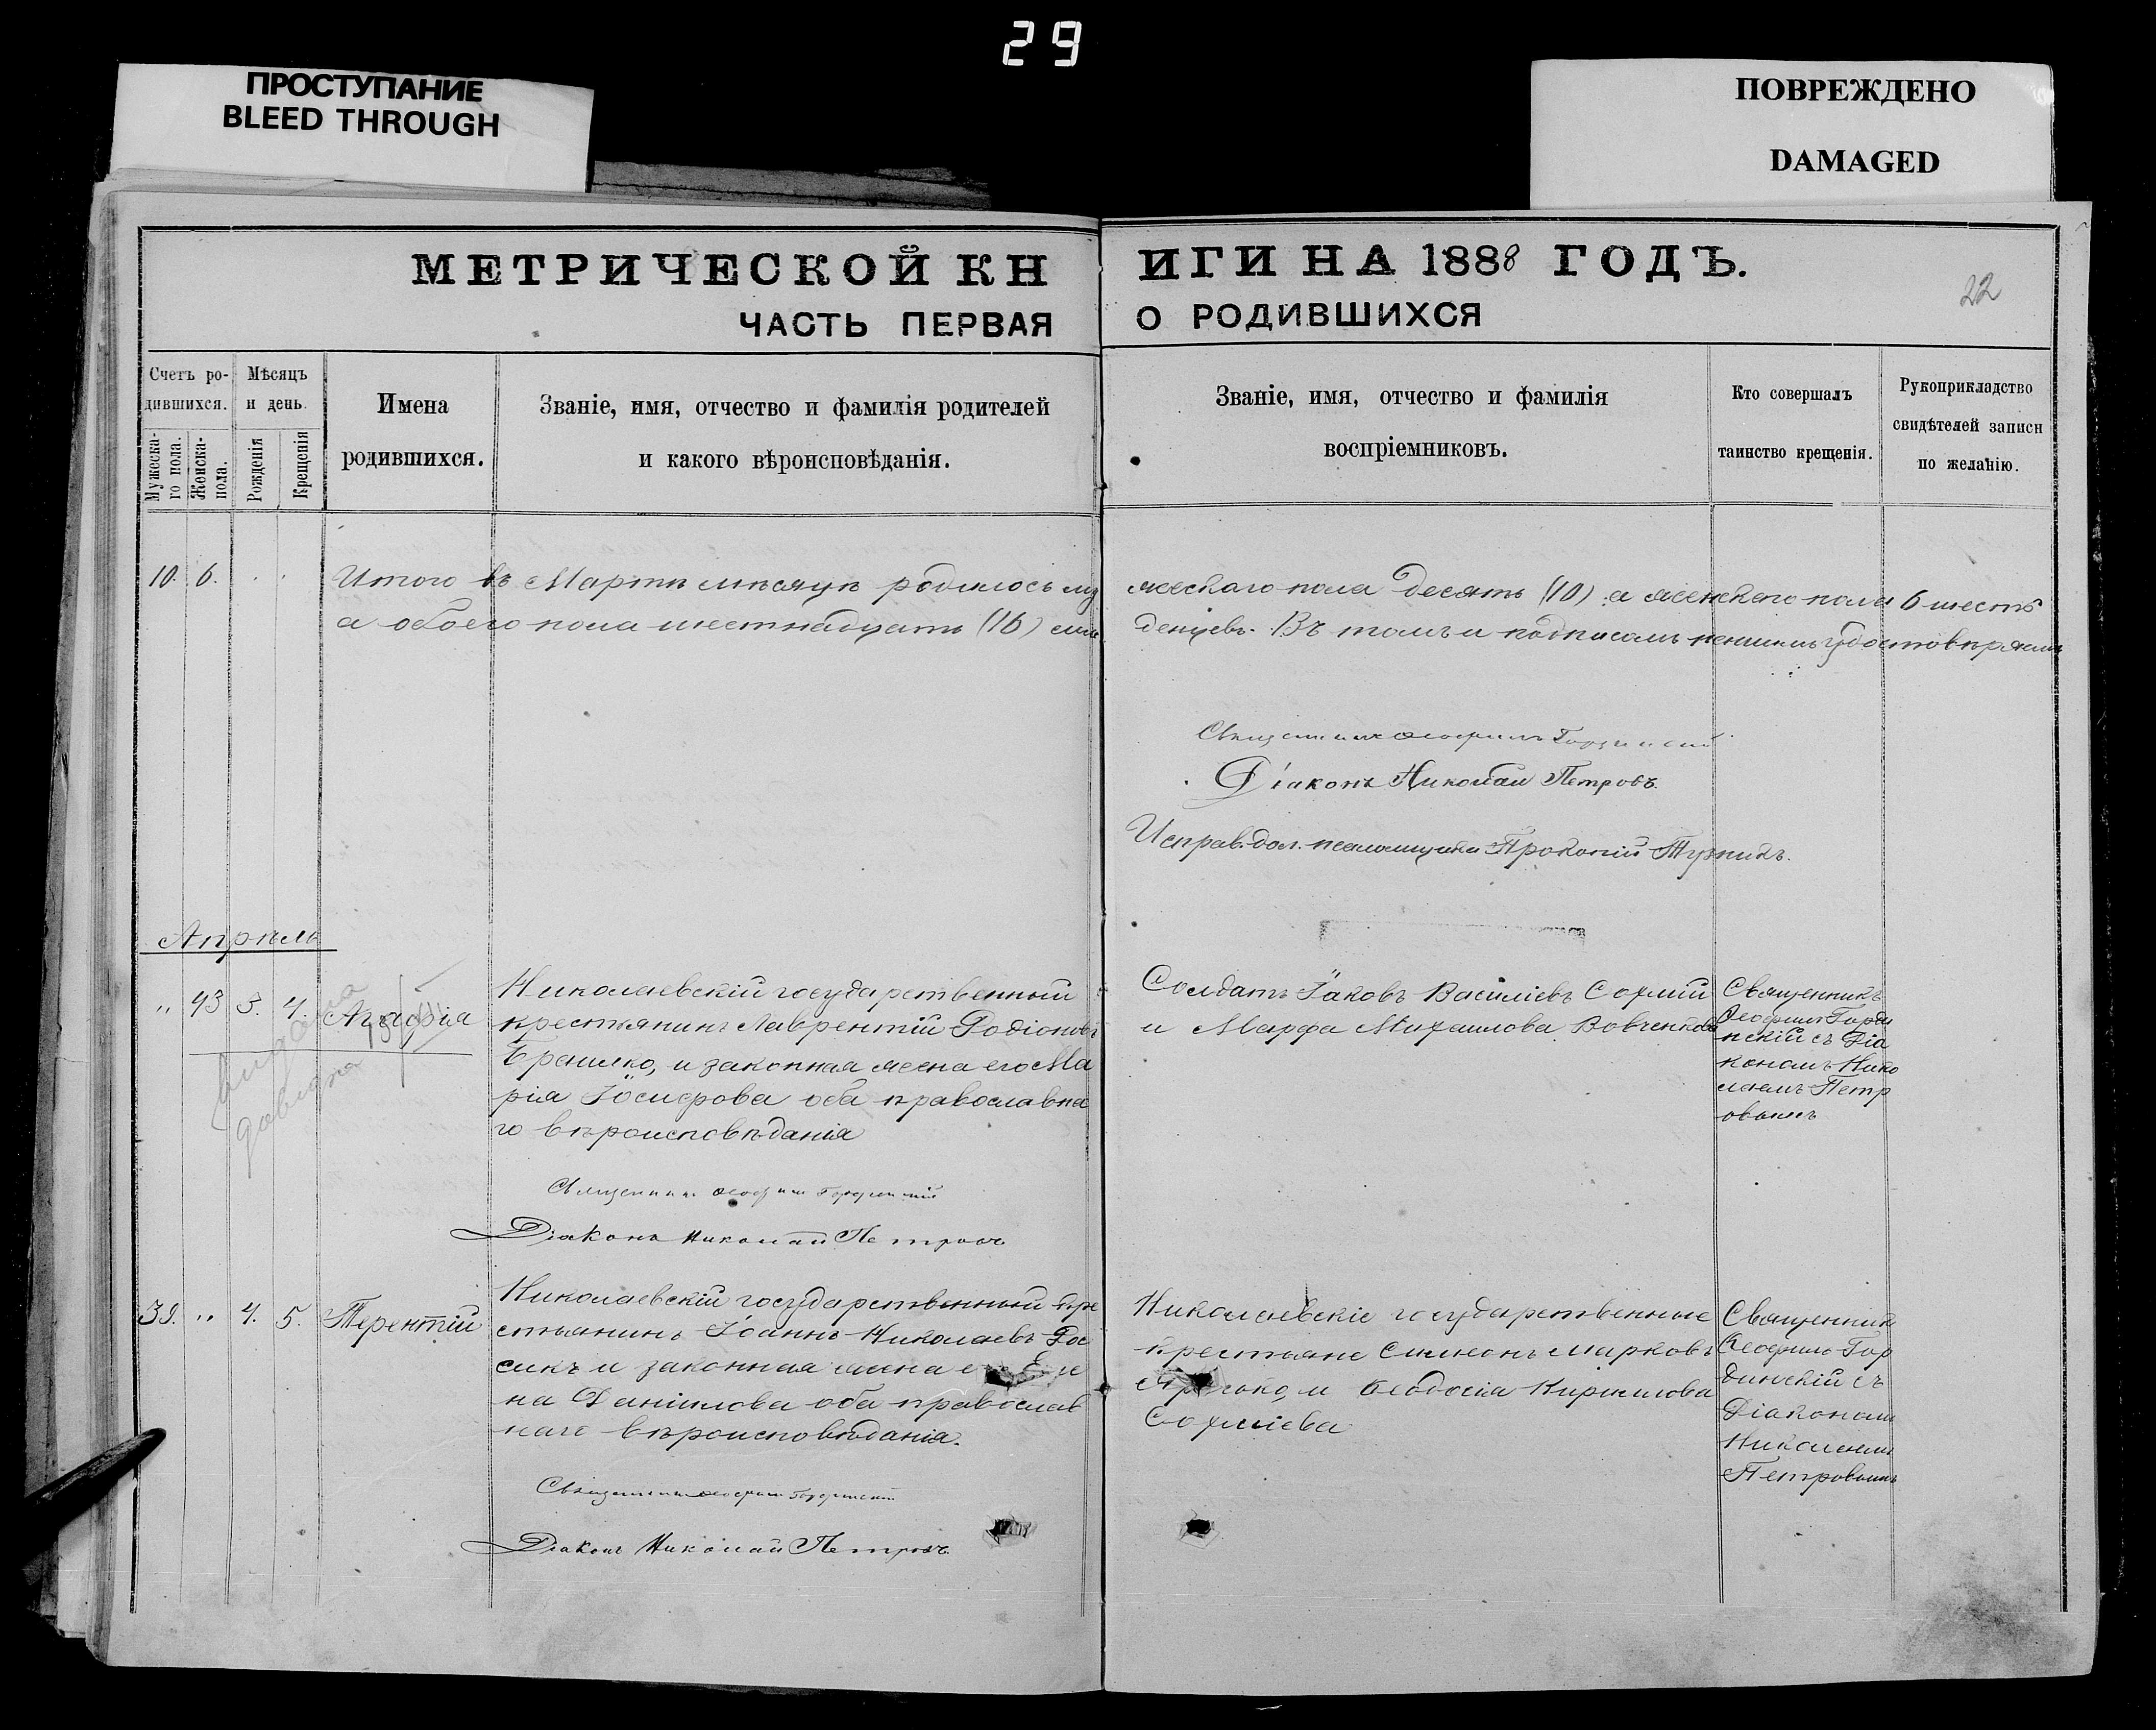 29
ПРОСТУПАНИЕ
BLEED THROUGH
ПОВРЕЖДЕНО
DAMAGED
МЕТРИЧЕСКОЙ КНИГИ НА 1888 ГОДЪ.
22
ЧАСТЬ ПЕРВАЯ О РОДИВШИХСЯ
Счетъ ро-
дившихся.
Мужеска-
го пола.
Женска-
пола.
Мѣсяцъ
и день.
Рожденія
Крещенія
Имена
родившихся.
Званіе, имя, отчество и фамилія родителей
и какого вѣроисповѣданія.
Званіе, имя, отчество и фамилія
воспріемниковъ.
Кто совершалъ
таинство крещенія.
Рукоприкладство
свидѣтелей записи
по желанію.
10. 6. Итого въ Мартѣ мѣсяцѣ родилось му жескаго пола десять (10) а женскаго пола 6 шесть
а обоего пола шестнадцать (16) мла денцевъ. Въ томъ и подписомъ нашимъ удостовѣряемъ
Священникъ Ѳеофилъ Гординскій
Діаконъ Николай Петровъ.
Исправ. дол. псаломщика Прокопій
Апрѣль
" 43 3. 4. Агафія
Николаевскій государственный
крестьянинъ Лаврентій Родіоновъ
и законная жена его Ма
рія Іосифова оба православна
го вѣроисповѣданія
Священникъ Ѳеофилъ Гординскій
Діаконъ Николай Петровъ
Солдатъ Іаковъ Василіевъ Сохмій
и Марфа Михаилова Вовченкова
Священникъ
Ѳеофилъ Горди
нскій съ Діа
кономъ Нико
лаемъ Петр
овымъ
39. " 4. 5. Терентій
Николаевскій государственный кре
стьянинъ Іоаннъ Николаевъ Рос
сикъ и законная жена
на Даніилова оба православ
наго вѣроисповѣданія.
Священникъ Ѳеофилъ Гординскій
Діаконъ Николай Петровъ.
Николаевскіе государственные
крестьяне Симеонъ Марковъ
и Ѳеодосія Кириллова
Сохміева
Священникъ
Ѳеофилъ Гор
динскій съ
Діакономъ
Николаемъ
Петровымъ